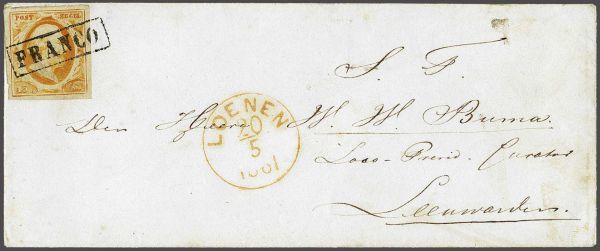 POST ZEGEL
FRANCO
15
S. F.
LOENEN
20/5
1861
Den Heere W. W. Buma
Loco-Presid. Curator
Leeuwarden.